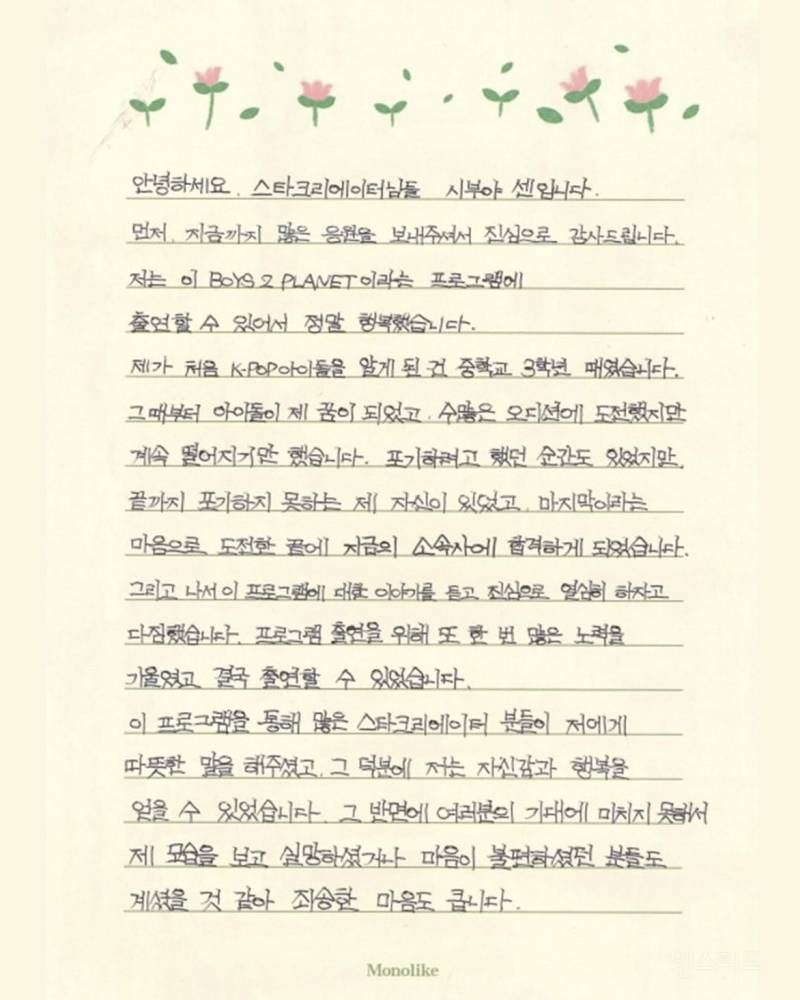 안녕하세요. 스타크리에이터님들 시부야 센입니다.
먼저, 지금까지 많은 응원을 보내주셔서 진심으로 감사드립니다.
저는 이 BOYS 2 PLANET이라는 프로그램에
출연할 수 있어서 정말 행복했습니다.
제가 처음 K-POP아이돌을 알게 된 건 중학교 3학년 때였습니다.
그때부터 아이돌이 제 꿈이 되었고, 수많은 오디션에 도전했지만
계속 떨어지기만 했습니다. 포기하려고 했던 순간도 있었지만,
끝까지 포기하지 못하는 제 자신이 있었고, 마지막이라는
마음으로 도전한 끝에 지금의 소속사에 합격하게 되었습니다.
그리고 나서 이 프로그램에 대한 이야기를 듣고 진심으로 열심히 하자고
다짐했습니다. 프로그램 출연을 위해 또 한 번 많은 노력을
기울였고 결국 출연할 수 있었습니다.
이 프로그램을 통해 많은 스타크리에이터 분들이 저에게
따뜻한 말을 해주셨고, 그 덕분에 저는 자신감과 행복을
얻을 수 있었습니다. 그 반면에 여러분의 기대에 미치지 못해서
제 모습을 보고 실망하셨거나 마음이 불편하셨던 분들도
계셨을 것 같아 죄송한 마음도 큽니다.
Monolike
인스티즈